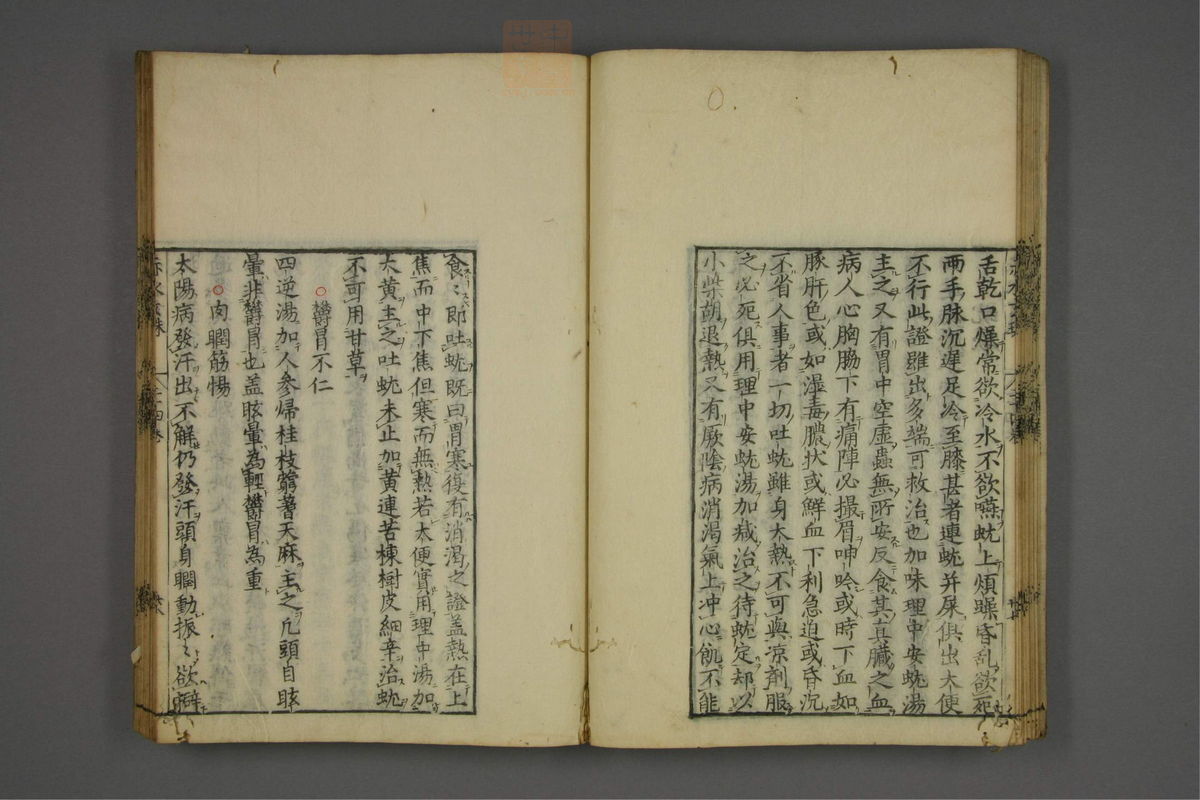 舌乾口燥常欲冷水不欲嚥蚘上煩躁昏乱欲死
兩手脉沉遲足冷至膝甚者連蚘并屎俱出大便
不行此證雖出多端可救治也加味理中安蚘湯
主之又有胃中空虛蟲無所安反食其真臟之血
病人心胸脇下有痛陣必撮眉呻吟或時下血如
豚肝色或如濕毒膿状或鮮血下利急迫或昏沉
不省人事者一切吐蚘雖身大熱不可與凉劑服
之必死俱用理中安蚘湯加减治之待蚘定却以
小柴胡退熱又有厥陰病消渴氣上冲心飢不能
食〻即吐蚘既曰胃寒復有消渴之證盖熱在上
焦而中下焦但寒而無熱若大便實用理中湯加
大黄主之吐蚘未止加黄連苦棟樹皮細辛治蚘
不可用甘草
○欝冒不仁
四逆湯加人參帰桂枝黄蓍天麻主之凢頭自眩
暈非欝冒也盖眩暈為輕欝冒為重
○肉瞤筋惕
太陽病發汗出不解仍發汗頭身瞤動振〻欲擗
赤水玄珠